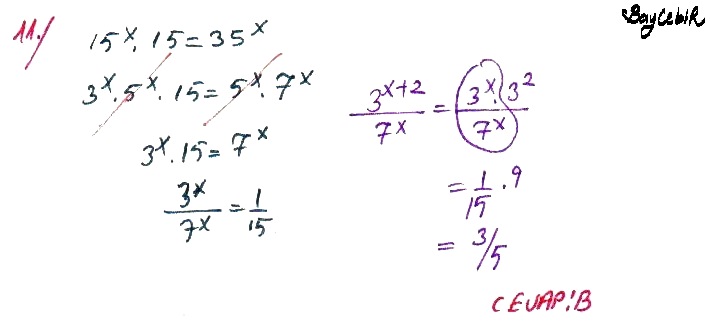 BayCebiR
11.) 15^x . 15 = 35^x
3^x . 5^x . 15 = 5^x . 7^x
3^x . 15 = 7^x
3^x / 7^x = 1/15
3^(x+2) / 7^x = 3^x . 3^2 / 7^x
= 1/15 . 9
= 3/5
CEVAP: B